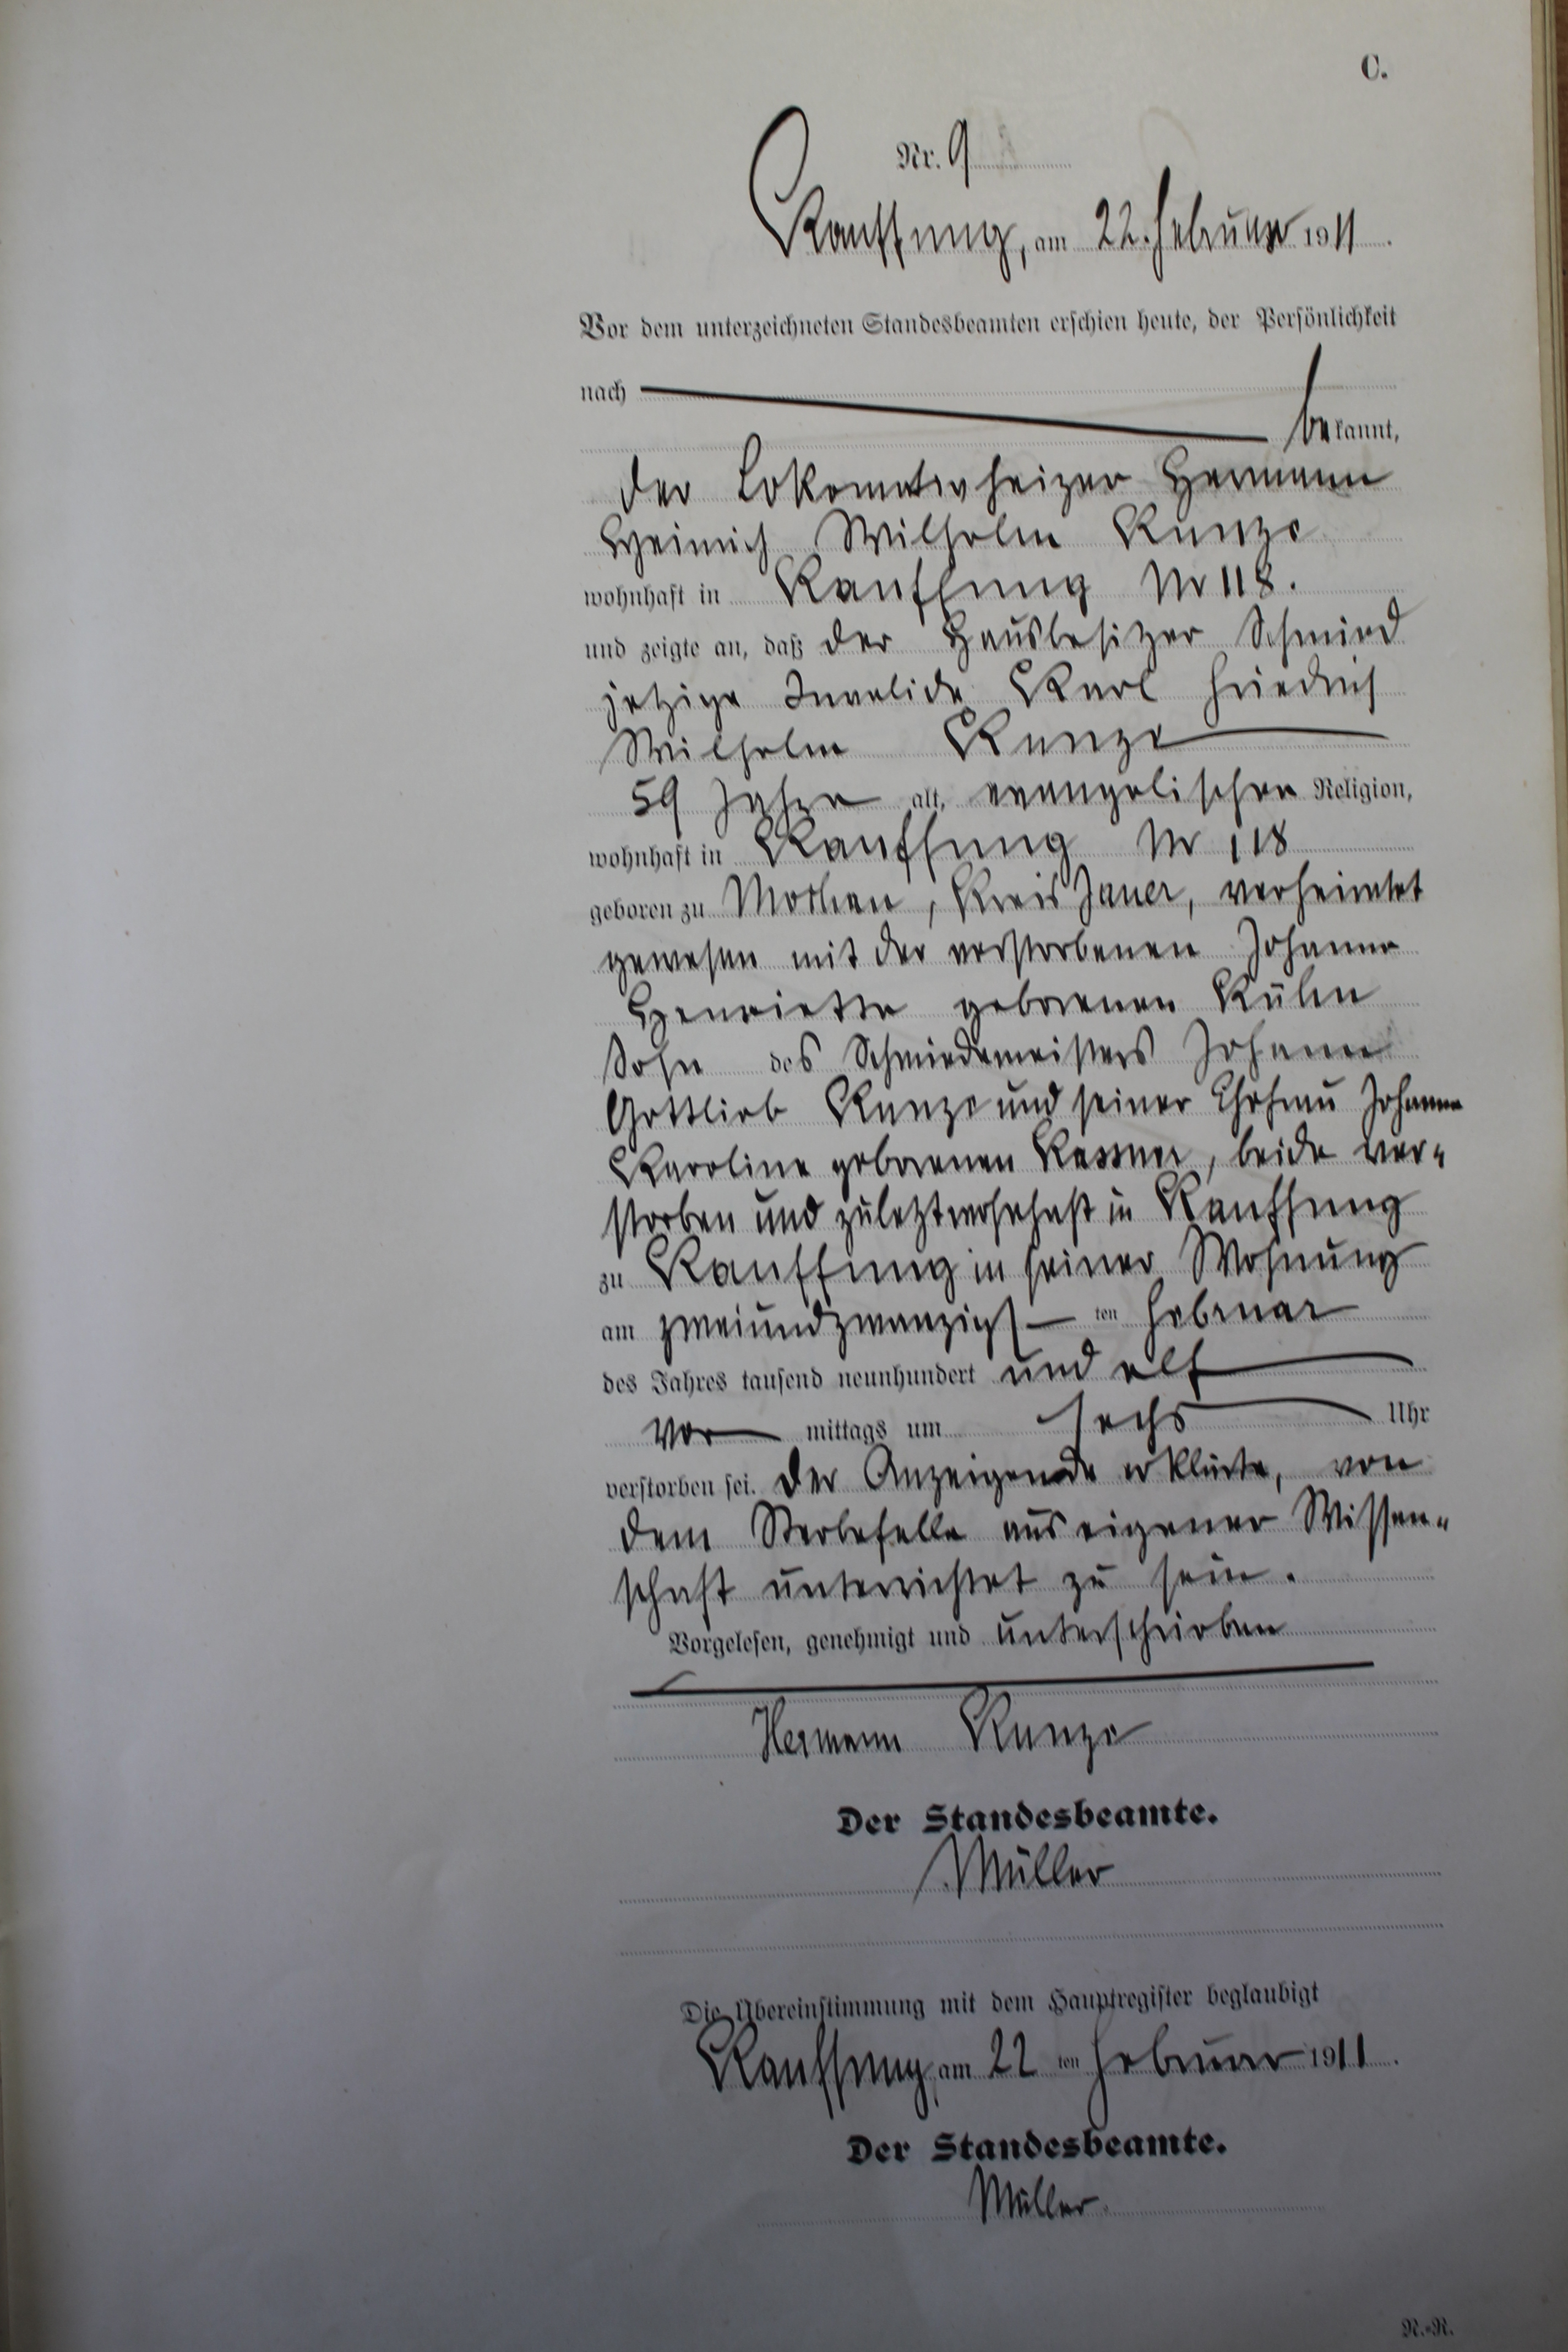 C.
Nr. 9
Kauffung, am 22. Februar 1911.
Vor dem unterzeichneten Standesbeamten erschien heute, der Persönlichkeit
nach
bekannt,
der Lokomotivheizer Hermann
Heinrich Wilhelm Kunze
wohnhaft in Kauffung Nr 118.
und zeigte an, daß der Hausbesitzer Schmied
jetzige Invalide Karl Friedrich
Wilhelm Kunze
59 Jahre alt, evangelischer Religion,
wohnhaft in Kauffung Nr 118
geboren zu Kreis Jauer, verheiratet
gewesen mit der verstorbenen Johanne
Henriette geborenen Kühn
Sohn des Schmiedemeisters Johann
Gottlieb Kunze und seiner Ehefrau Johanne
Karoline geborenen Kassner, beide ver-
storben und zuletzt wohnhaft in Kauffung
zu Kauffung in seiner Wohnung
am zweiundzwanzigsten Februar
des Jahres tausend neunhundert und elf
vormittags um sechs Uhr
verstorben sei. Der Anzeigende erklärte, von
dem Sterbefalle aus eigener Wissen-
schaft unterrichtet zu sein.
Vorgelesen, genehmigt und unterschrieben
Hermann Kunze
Der Standesbeamte.
Müller
Die Übereinstimmung mit dem Hauptregister beglaubigt
Kauffung, am 22 ten Februar 1911.
Der Standesbeamte.
Müller.
N.-R.